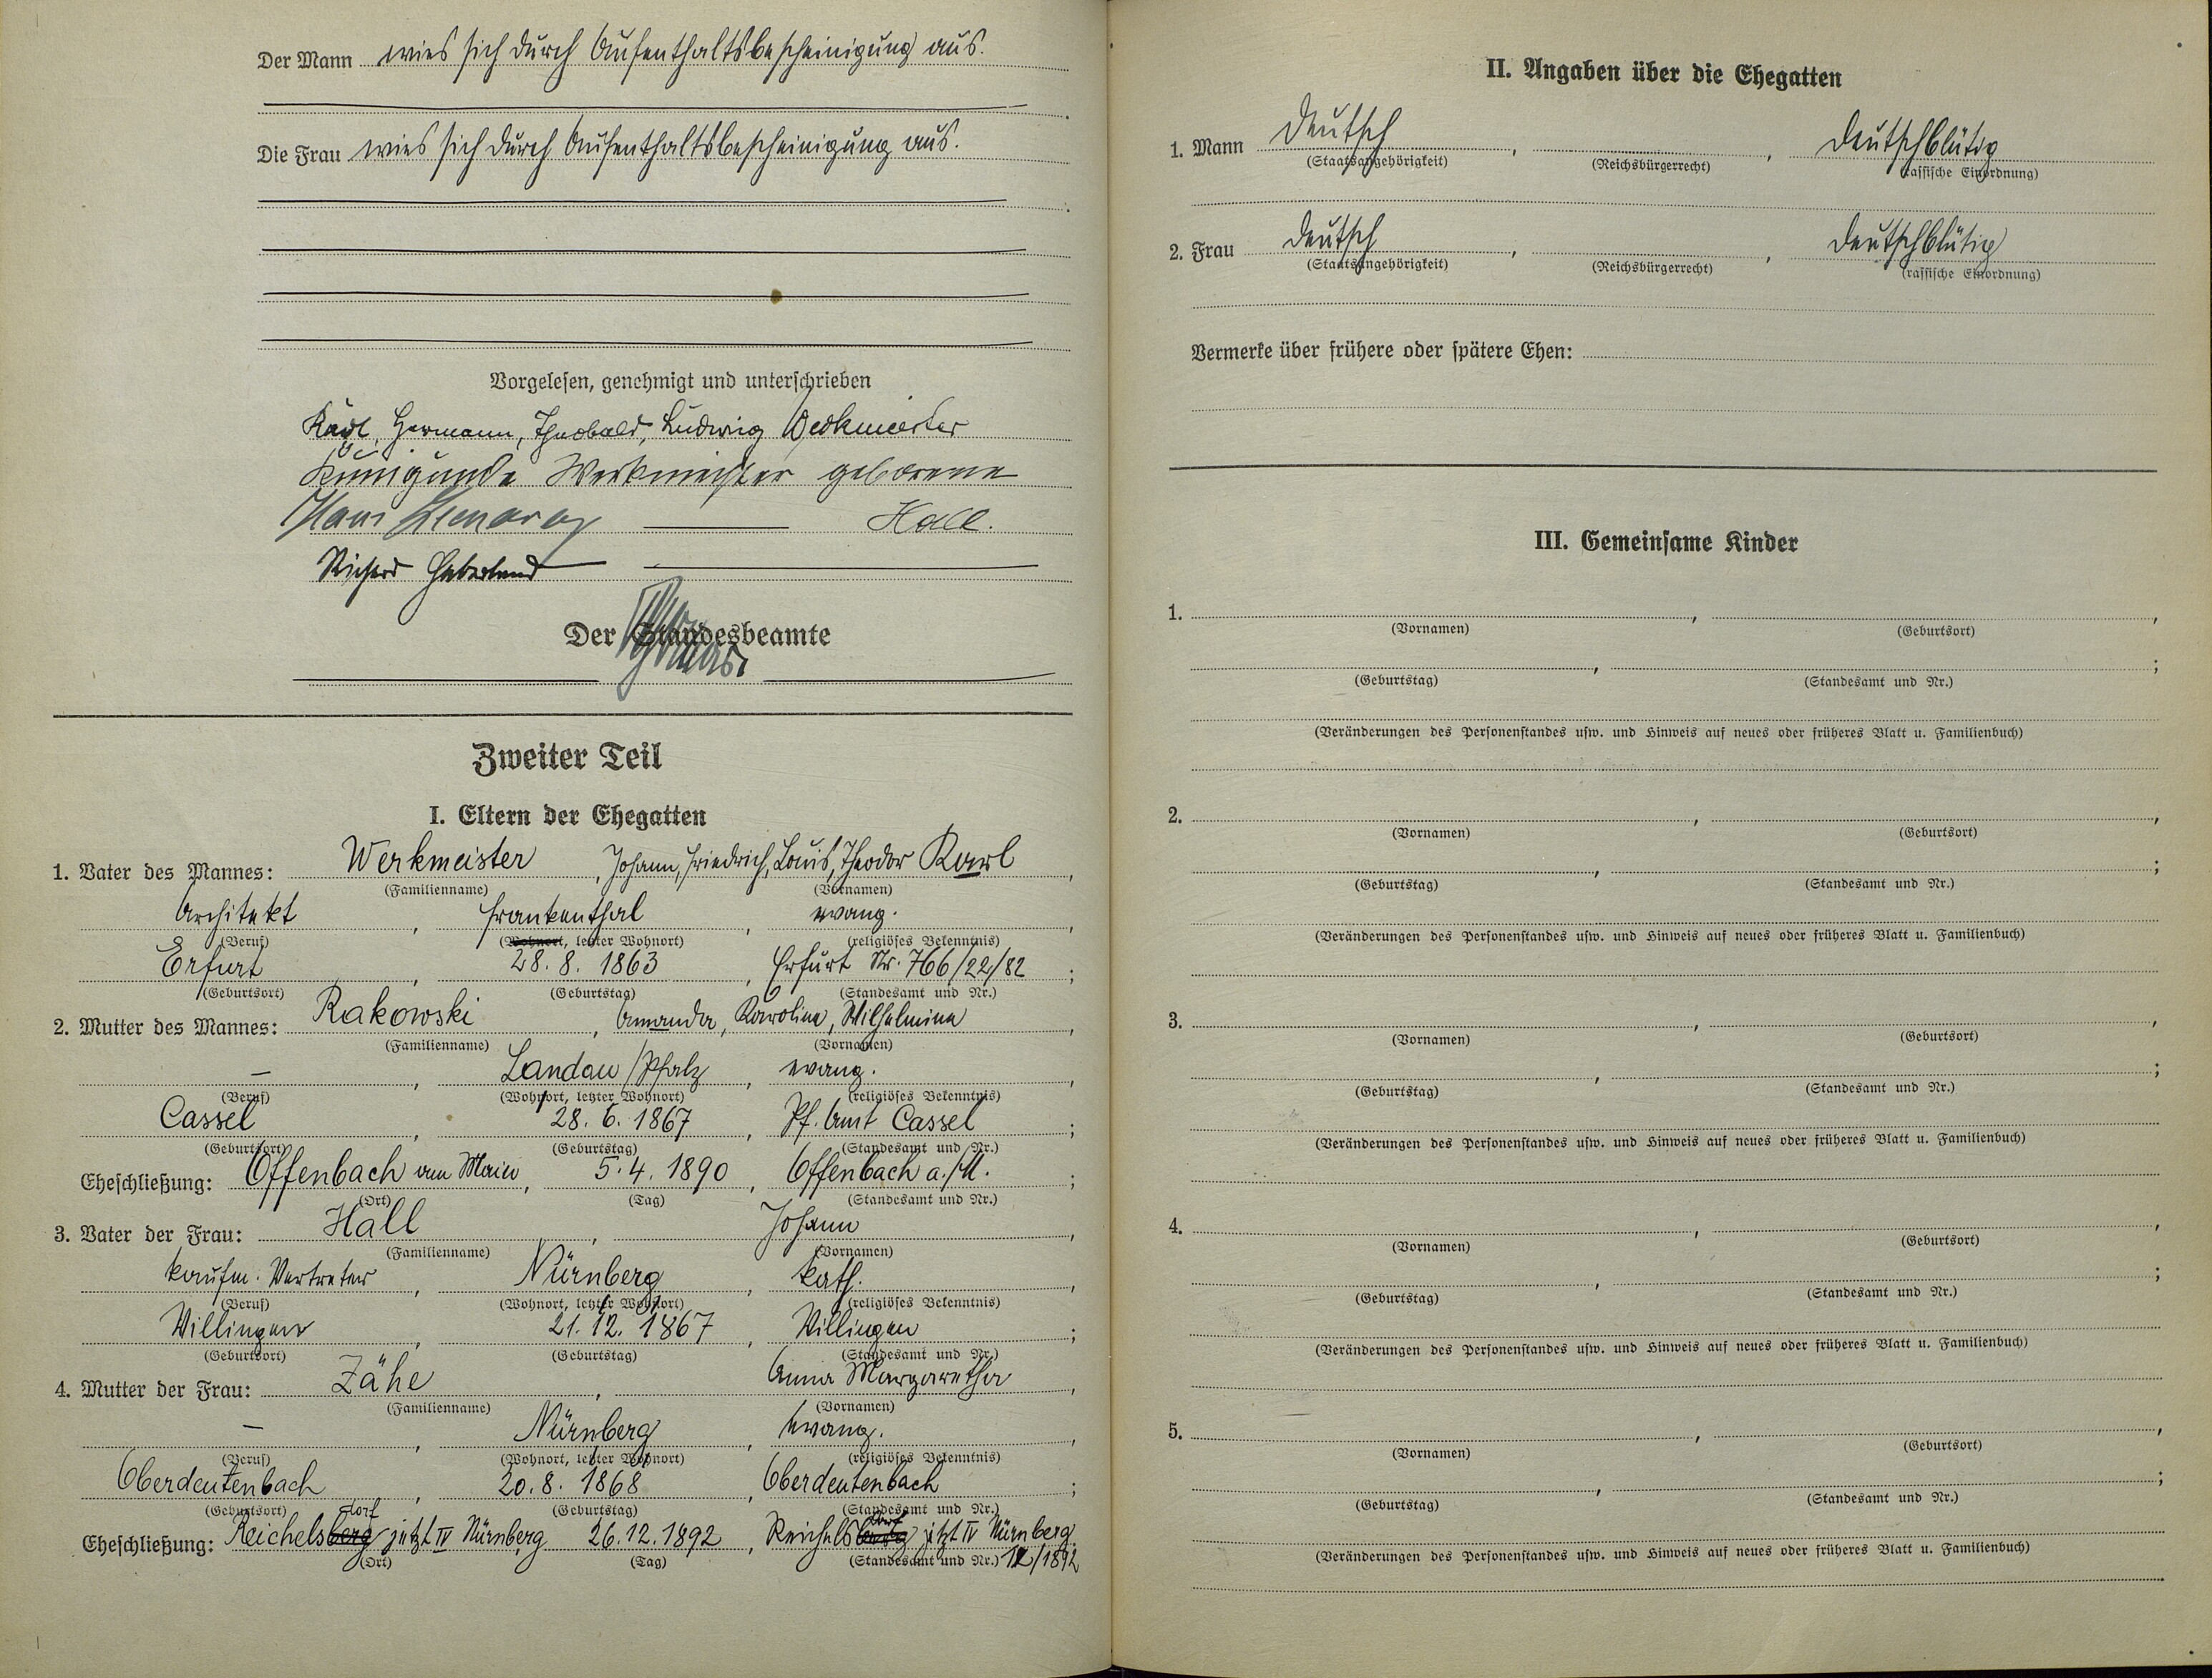 Der Mann wies sich durch Aufenthaltsbescheinigung aus.
Die Frau wies sich durch Aufenthaltsbescheinigung aus.
Vorgelesen, genehmigt und unterschrieben
Karl, Hermann, Theobald, Ludwig Werkmeister
Kunigunde Werkmeister geborene
Hans Hall.
Richard Haberland
Der Standesbeamte
Zweiter Teil
I. Eltern der Ehegatten
1. Vater des Mannes: Werkmeister, Johann, Friedrich, Louis, Theodor Karl,
(Familienname) (Vornamen)
Architekt, Frankenthal evang.,
(Beruf) (Wohnort, letzter Wohnort) (religiöses Bekenntnis)
Erfurt, 28. 8. 1863, Erfurt Nr. 766/22/82;
(Geburtsort) (Geburtstag) (Standesamt und Nr.)
2. Mutter des Mannes: Rakowski, Amanda, Karoline, Wilhelmine,
(Familienname) (Vornamen)
–, Landau /Pfalz, evang.,
(Beruf) (Wohnort, letzter Wohnort) (religiöses Bekenntnis)
Cassel, 28. 6. 1867, Pf. Amt Cassel;
(Geburtsort) (Geburtstag) (Standesamt und Nr.)
Eheschließung: Offenbach am Main, 5. 4. 1890, Offenbach a./M.;
(Ort) (Tag) (Standesamt und Nr.)
3. Vater der Frau: Hall, Johann,
(Familienname) (Vornamen)
kaufm. Vertreter, Nürnberg, kath.,
(Beruf) (Wohnort, letzter Wohnort) (religiöses Bekenntnis)
Villingen, 21. 12. 1867, Villingen;
(Geburtsort) (Geburtstag) (Standesamt und Nr.)
4. Mutter der Frau: Zähe, Anna Margaretha,
(Familienname) (Vornamen)
–, Nürnberg, evang.,
(Beruf) (Wohnort, letzter Wohnort) (religiöses Bekenntnis)
Oberdeutenbach, 20. 8. 1868, Oberdeutenbach;
(Geburtsort) (Geburtstag) (Standesamt und Nr.)
dorf dorf
Eheschließung: Reichelsberg jetzt IV Nürnberg, 26. 12. 1892, Reichelsberg jetzt IV Nürnberg
(Ort) (Tag) (Standesamt und Nr.) 12/1892
II. Angaben über die Ehegatten
1. Mann deutsch, , deutschblütig
(Staatsangehörigkeit) (Reichsbürgerrecht) (rassische Einordnung)
2. Frau deutsch, , deutschblütig
(Staatsangehörigkeit) (Reichsbürgerrecht) (rassische Einordnung)
Vermerke über frühere oder spätere Ehen:
III. Gemeinsame Kinder
1. , ,
(Vornamen) (Geburtsort)
, ;
(Geburtstag) (Standesamt und Nr.)
(Veränderungen des Personenstandes usw. und Hinweis auf neues oder früheres Blatt u. Familienbuch)
2. , ,
(Vornamen) (Geburtsort)
, ;
(Geburtstag) (Standesamt und Nr.)
(Veränderungen des Personenstandes usw. und Hinweis auf neues oder früheres Blatt u. Familienbuch)
3. , ,
(Vornamen) (Geburtsort)
, ;
(Geburtstag) (Standesamt und Nr.)
(Veränderungen des Personenstandes usw. und Hinweis auf neues oder früheres Blatt u. Familienbuch)
4. , ,
(Vornamen) (Geburtsort)
, ;
(Geburtstag) (Standesamt und Nr.)
(Veränderungen des Personenstandes usw. und Hinweis auf neues oder früheres Blatt u. Familienbuch)
5. , ,
(Vornamen) (Geburtsort)
, ;
(Geburtstag) (Standesamt und Nr.)
(Veränderungen des Personenstandes usw. und Hinweis auf neues oder früheres Blatt u. Familienbuch)